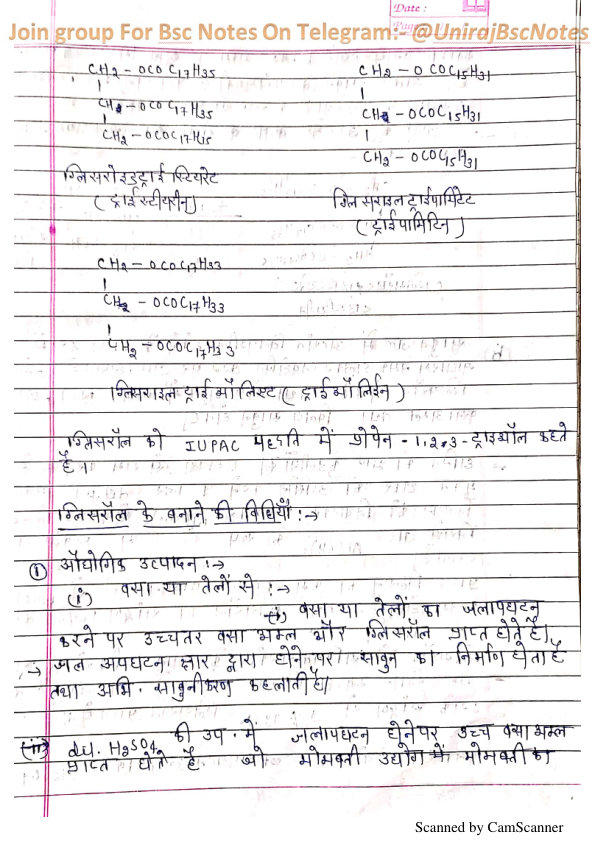 Date :
Page
Join group For Bsc Notes On Telegram:- @UnirajBscNotes
CH2 - OCO C17H35
CH2 - OCO C17H35
CH2 - OCO C17H35
ग्लिसरोइड्ट्राई स्टियरेट
( ट्राईस्टीयरीन)
CH2 - O COC15H31
CH2 - OCOC15H31
CH2 - OCOC15H31
ग्लिसराइल ट्राईपामिटेट
( ट्राईपामिटिन )
CH2 - OCOC17H33
CH2 - OCOC17H33
CH2 - OCOC17H33
ग्लिसराइल ट्राईऑलिस्ट ( ट्राईऑलिईन )
ग्लिसरॉल को IUPAC पद्दति में प्रोपेन - 1,2,3 - ट्राइऑल कहते
है।
ग्लिसरॉल के बनाने की विधियाँ :→
① औद्योगिक उत्पादन :→
(i) वसा या तेलों से :→
(i) वसा या तेलों का जलापघटन
करने पर उच्चतर वसा अम्ल और ग्लिसरॉल प्राप्त होते है।
→ जल अपघटन क्षार द्वारा होने पर साबुन का निर्माण होता है
तथा अभि. साबुनीकरण कहलाती है।
(ii) dil. H2SO4 की उप. में जलापघटन होने पर उच्च वसा अम्ल
प्राप्त होते है. जो मोमबत्ती उद्योग में मोमबत्ती का
Scanned by CamScanner